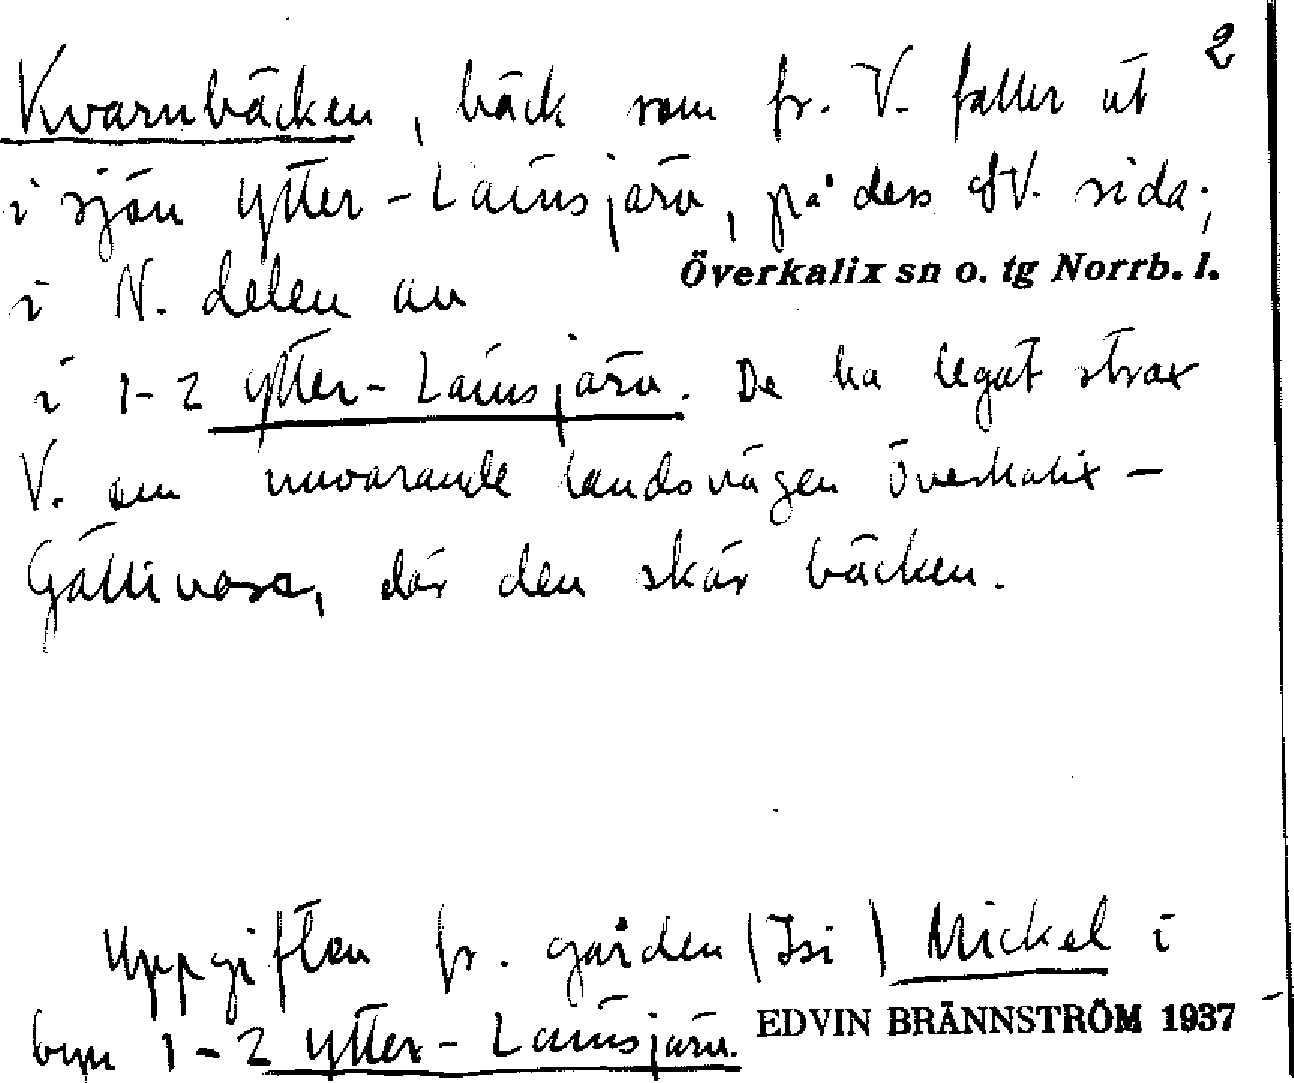 2
Kvarnbäcken, bäck som fr. V. faller ut
i sjön Ytter-Lainsjärv, på dess SV. sida;
Överkalix sn o. tg Norrb. l.
i N. delen av
i 1-2 Ytter-Lainsjärv. De ha legat strax
V. om nuvarande landsvägen Överkalix –
Gällivare, där den skär bäcken.
Uppgiften fr. gården (Isi) Mickel i
byn 1-2 Ytter-Lainsjärv.
EDVIN BRÄNNSTRÖM 1937